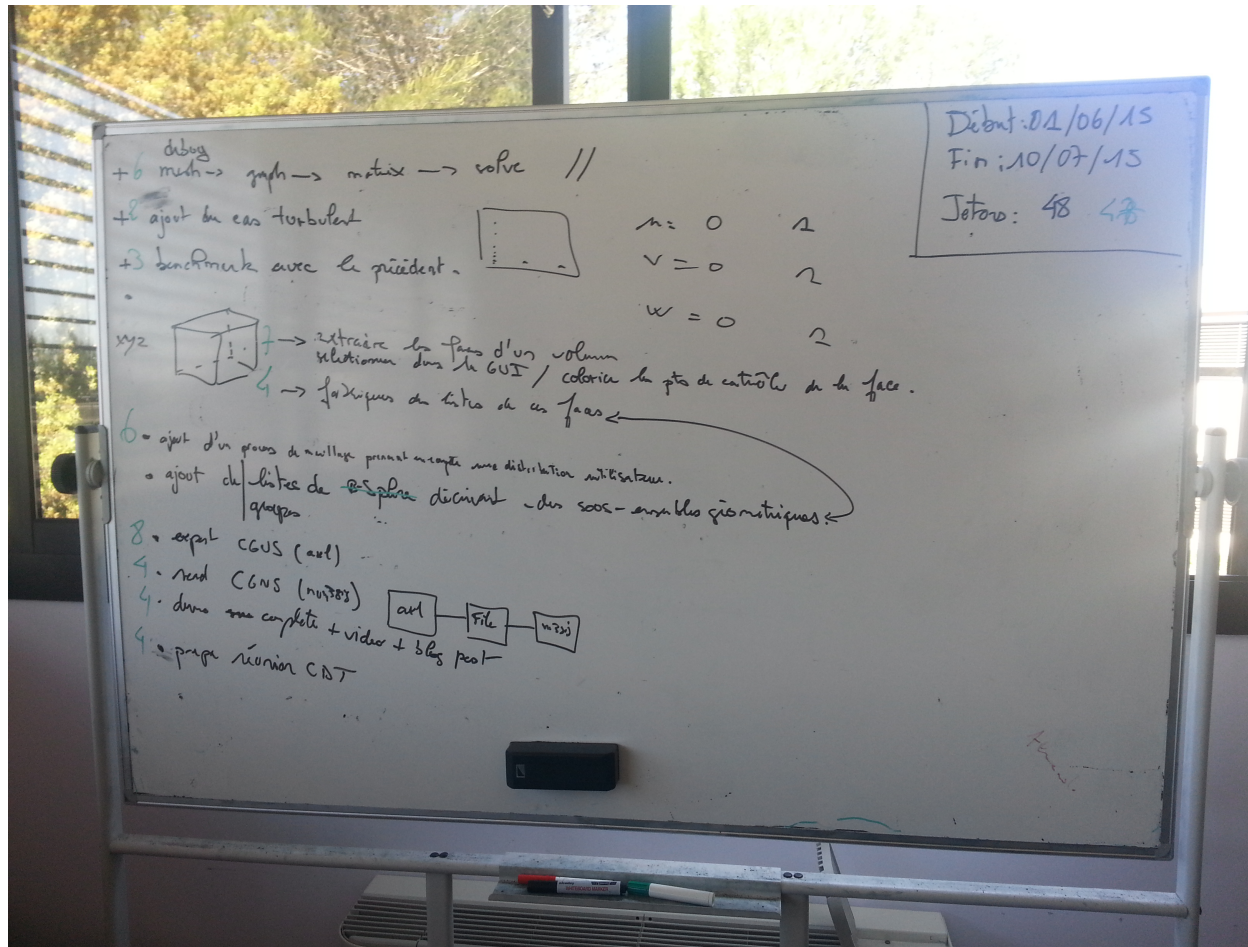 Début : 01/06/15
Fin : 10/07/15
Jetons : 48
debug
+6 mesh -> graph -> matrix -> solve //
+2 ajout du cas turbulent
+3 benchmark avec le précédent.
u = 0 1
v = 0 1
w = 0 1
xyz
7 -> extraire les faces d'un volume
selectionner dans la GUI / colorier les pts de contrôle de la face.
4 -> fabriquer des listes de ces faces
6 • ajout d'un process de maillage prenant en compte une distribution utilisateur.
• ajout de listes de décrivant des sous-ensembles géométriques.
groupes
8 • export CGNS (axl)
4 • read CGNS (num3sis)
4 • demo complete + video + blog post
axl File n3sis
4 • prepa réunion CDT